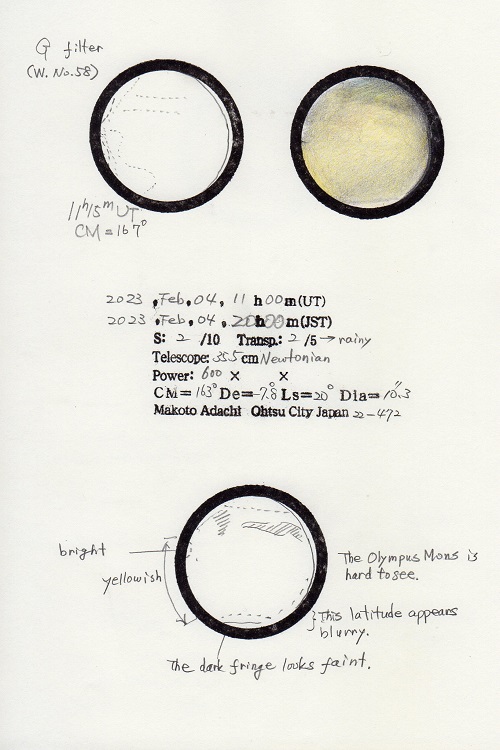 G filter
(W. No.58)
11h15m UT
CM=167°
2023 ,Feb, 04, 11 h00m(UT)
2023 ,Feb, 04, 20h00m(JST)
S: 2 /10 Transp.: 2 /5 → rainy
Telescope: 355cm Newtonian
Power: 600 × ×
CM=163° De=-7.8° Ls=20° Dia=10".3
Makoto Adachi Ohtsu City Japan 22-472
bright
yellowish
The Olympus Mons is
hard to see.
This latitude appears
blurry.
The dark fringe looks faint.